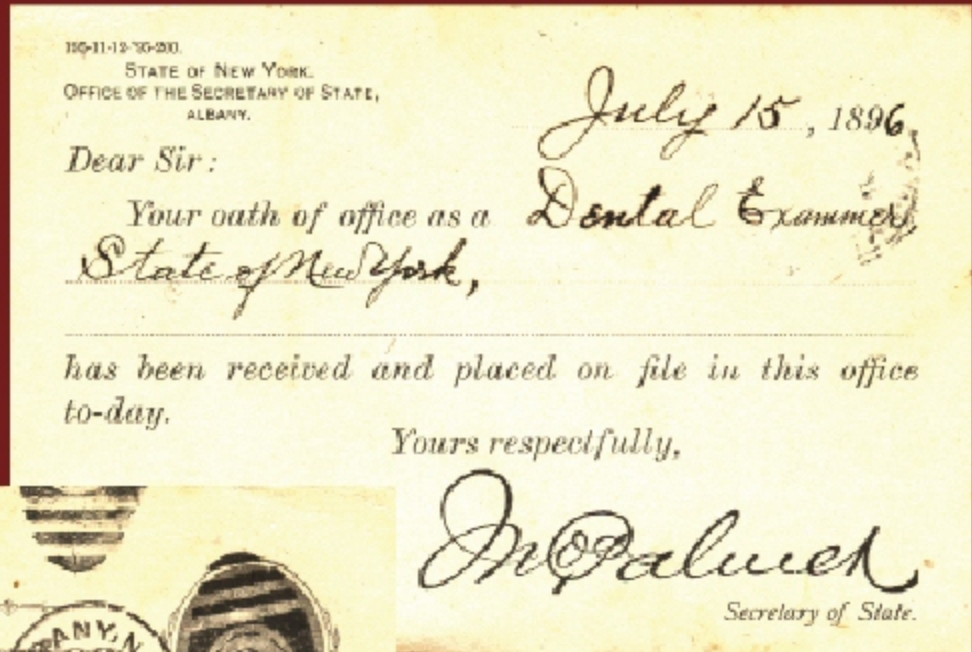 STATE OF NEW YORK.
OFFICE OF THE SECRETARY OF STATE,
ALBANY.
July 15, 1896.
Dear Sir:
Your oath of office as a Dental Examiner
State of New York,
has been received and placed on file in this office
to-day.
Yours respectfully,
Palmer
Secretary of State.
ANY, N